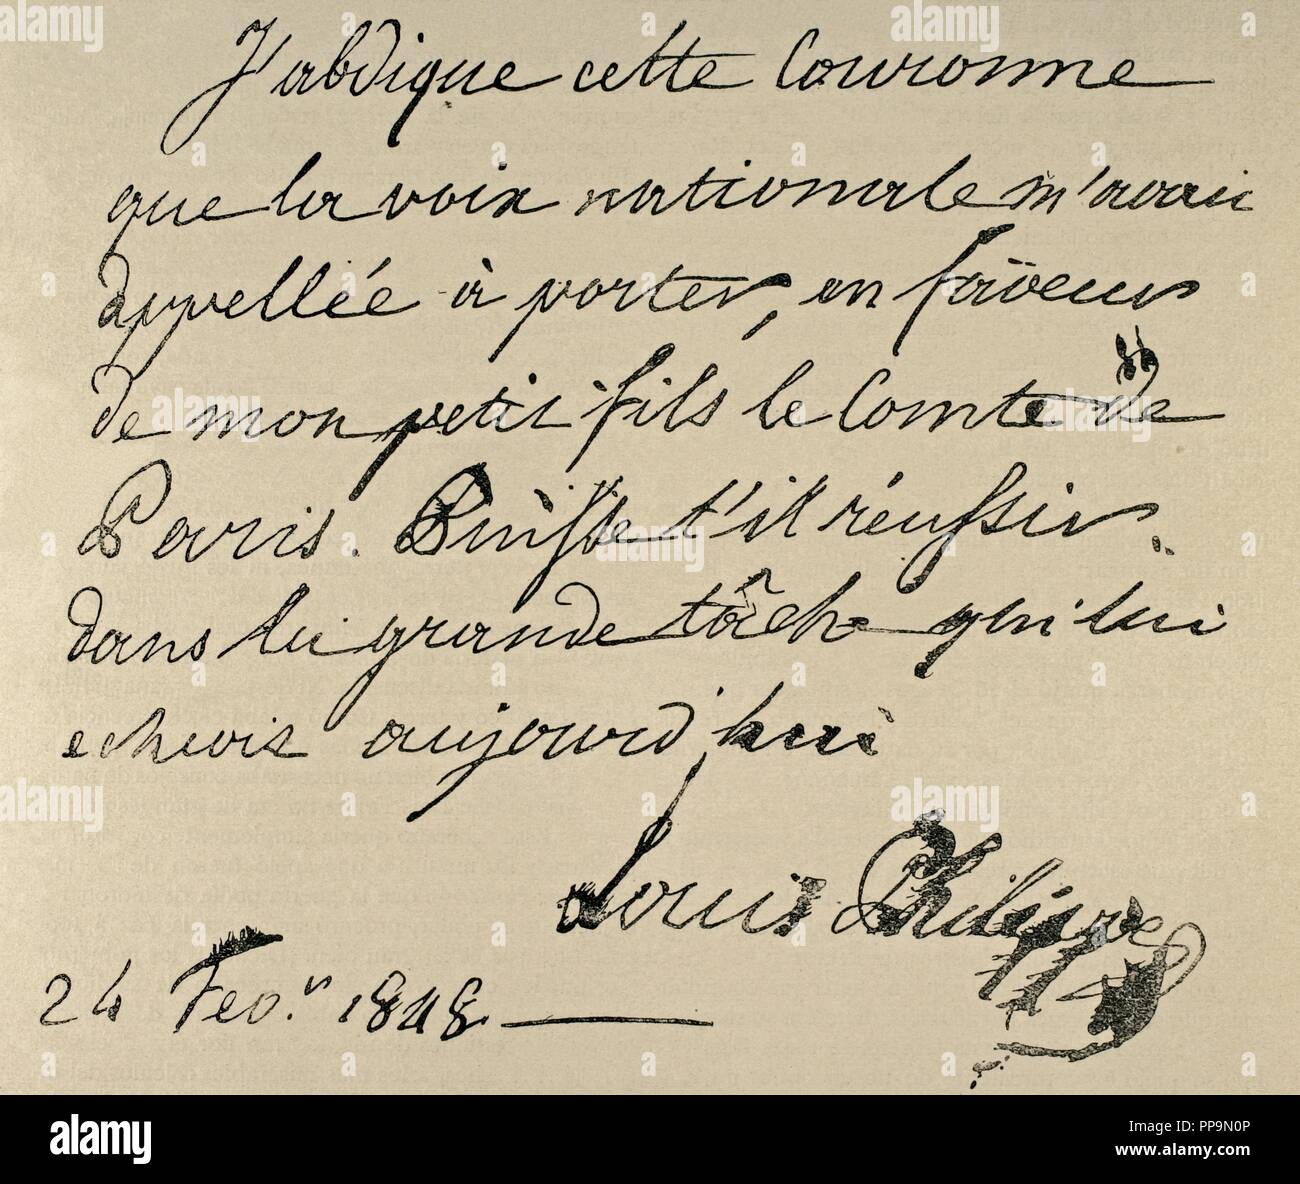 J'abdique cette Couronne
que la voix nationale m'avait
appellée à porter, en faveur
de mon petit fils le Comte de
Paris. Puisse t'il réussir
dans la grande tâche qui lui
echeoit aujourd'hui
Louis Philippe
24 Fev.r 1848
alamy
Image ID: PP9N0P
www.alamy.com